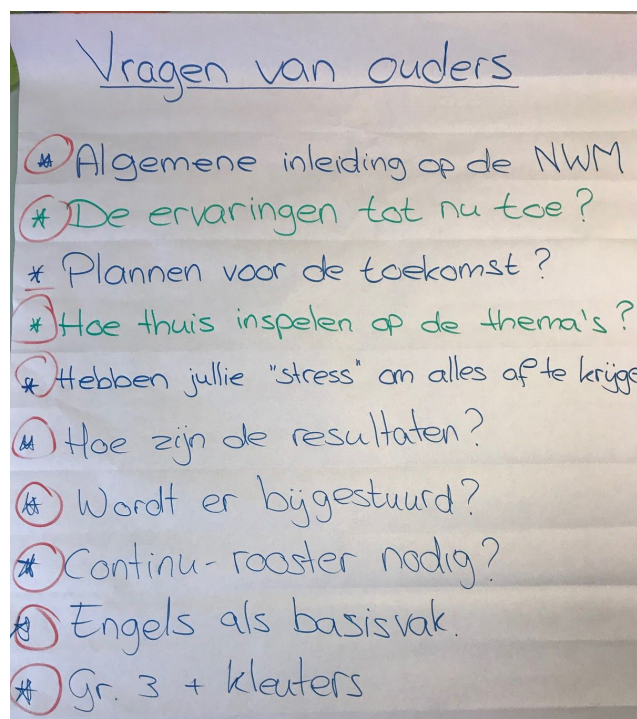 Vragen van ouders
* Algemene inleiding op de NWM
* De ervaringen tot nu toe?
* Plannen voor de toekomst?
* Hoe thuis inspelen op de thema's?
* Hebben jullie "stress" om alles af te krijge
* Hoe zijn de resultaten?
* Wordt er bijgestuurd?
* Continu-rooster nodig?
* Engels als basisvak.
* Gr. 3 + kleuters